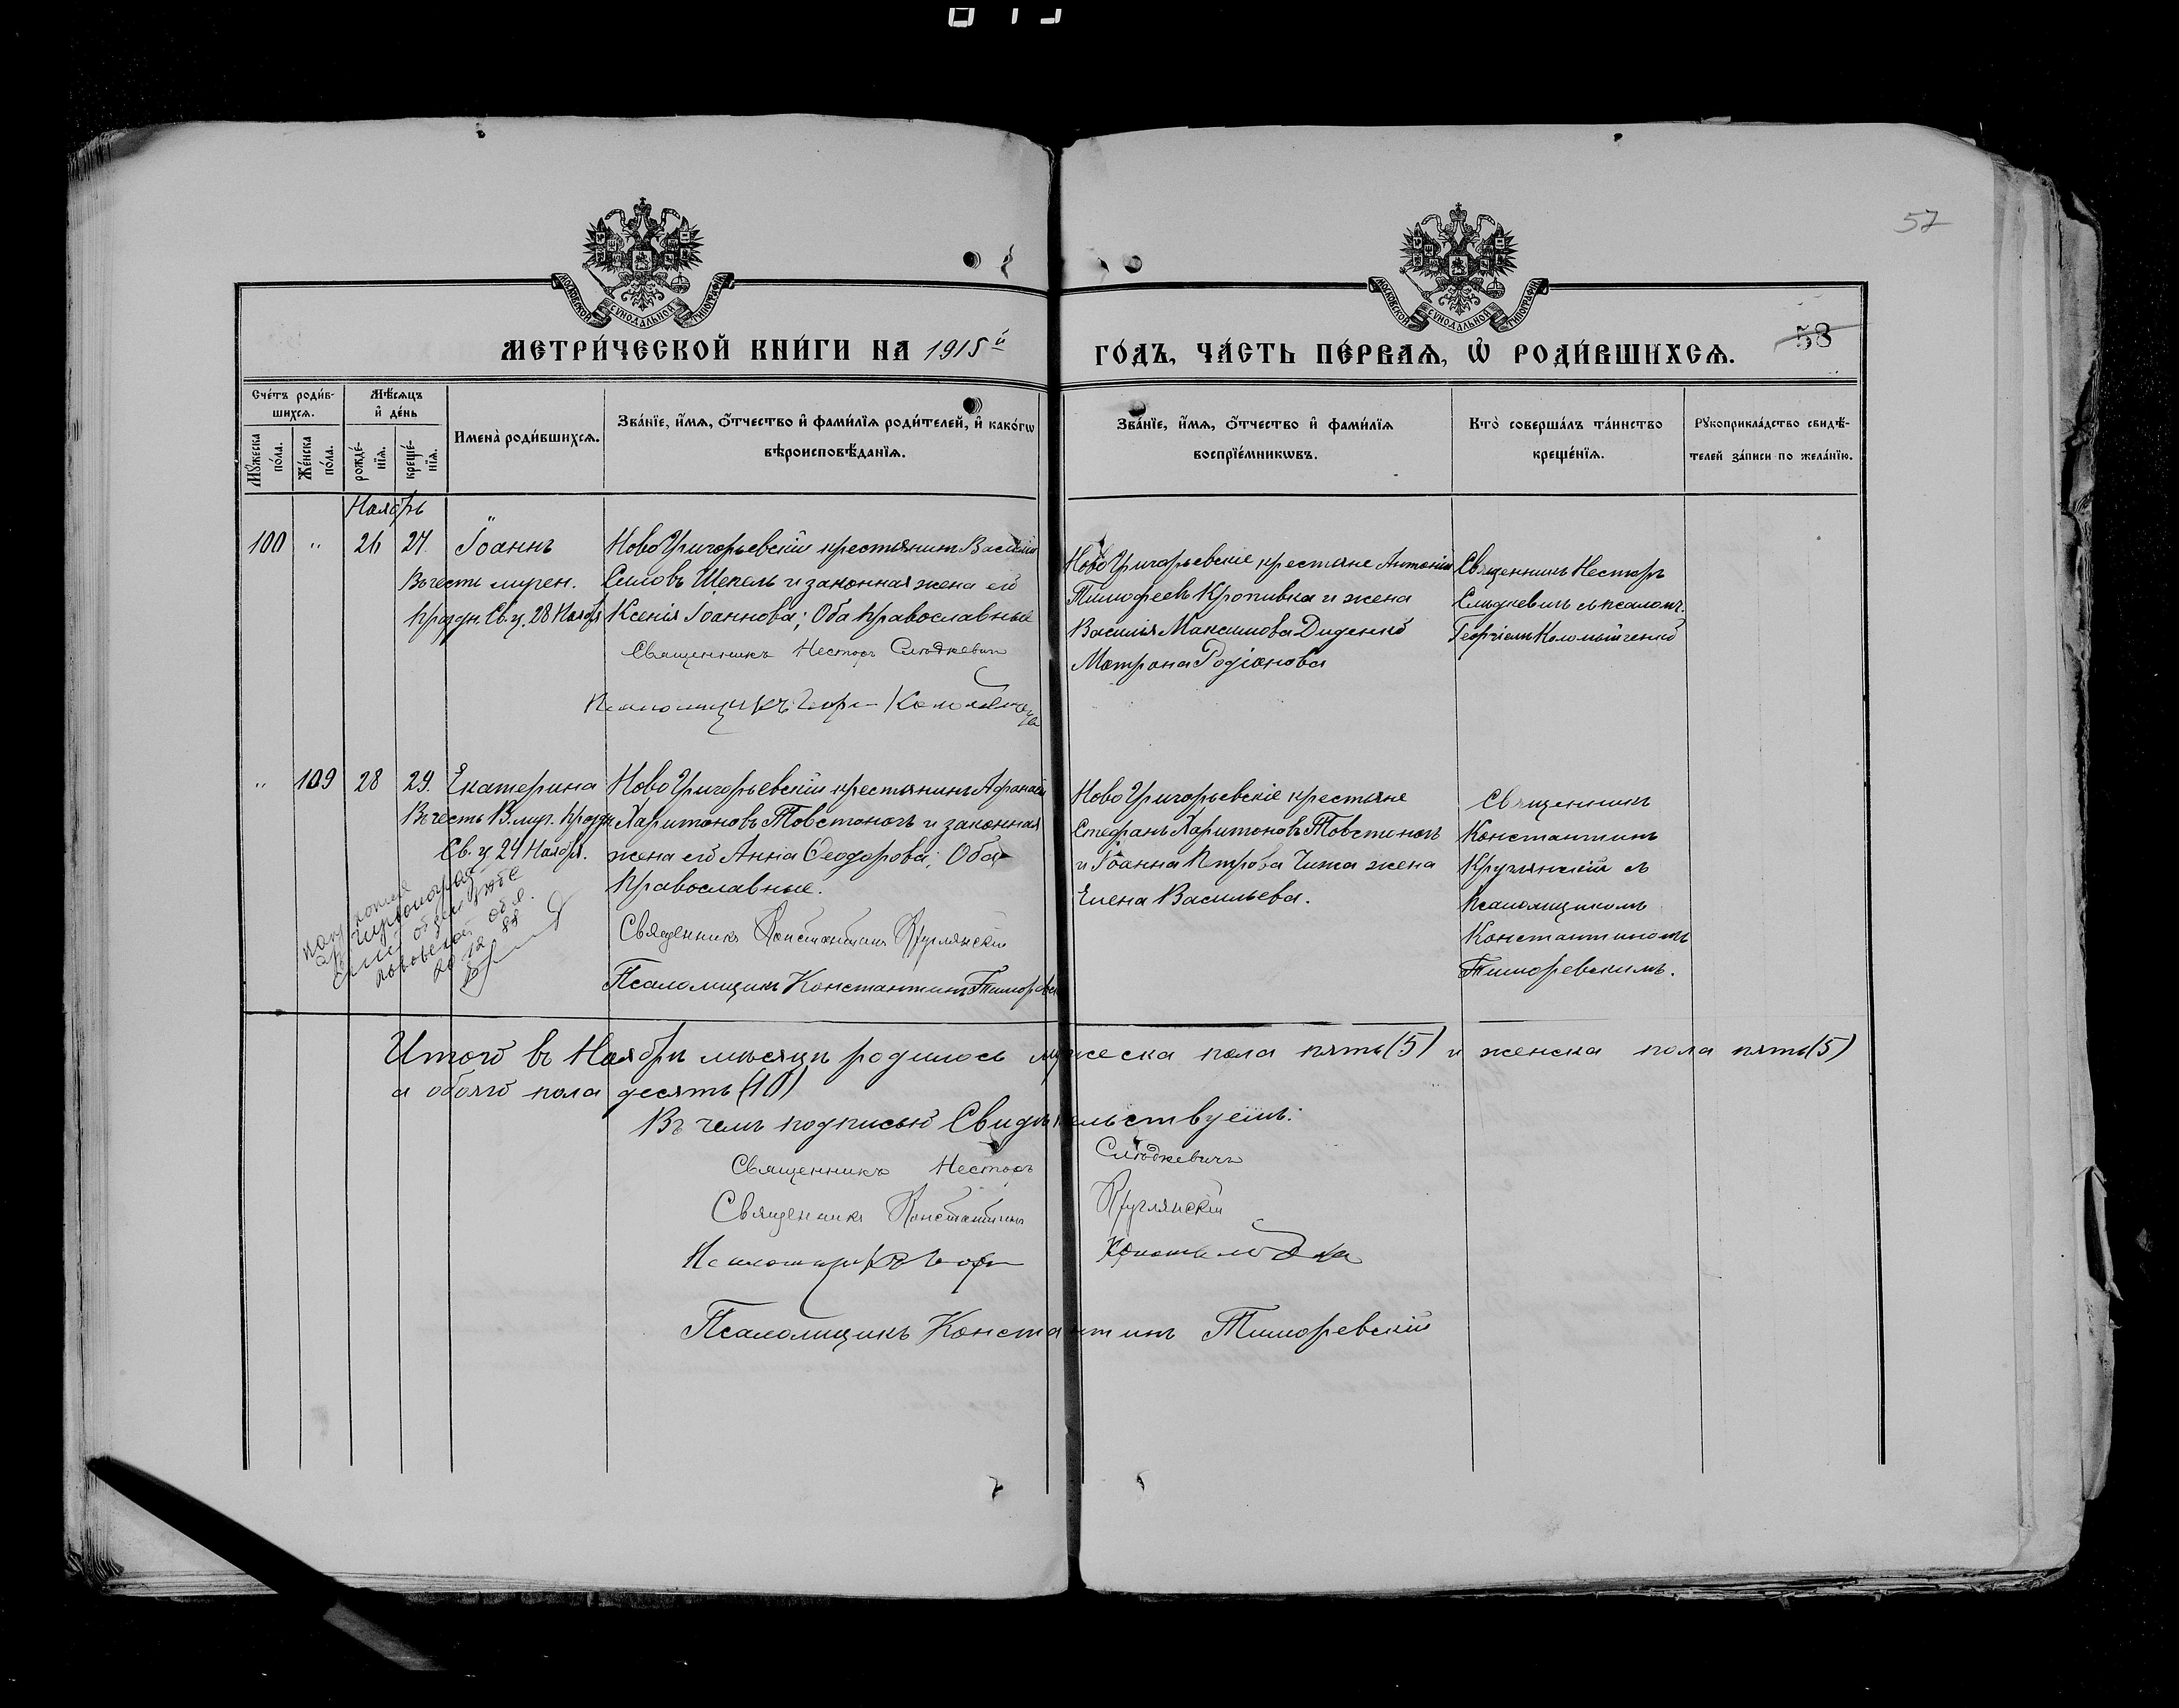 57
58
МОСКОВСКОЙ СѴНОДАЛЬНОЙ ТИПОГРАФІИ
МОСКОВСКОЙ СѴНОДАЛЬНОЙ ТИПОГРАФІИ
МЕТРИ́ЧЕСКОЙ КНИ́ГИ НА 1915й
ГО́ДЪ, ЧА́СТЬ ПЕ́РВАѦ, Ѡ҆ РОДИ́ВШИХСѦ.
Сче́тъ роди́в-
шихсѧ.
Мꙋ́жеска
по́ла.
Же́нска
по́ла.
Мѣ́сѧцъ
и҆ де́нь
рожде́-
нїѧ.
креще́-
нїѧ.
И҆мена̀ роди́вшихсѧ.
Зва́нїе, и҆́мѧ, ѻ҆́тчество и҆ фами́лїѧ роди́телей, и҆ како́гѡ
вѣроисповѣ́данїѧ.
Зва́нїе, и҆́мѧ, ѻ҆́тчество и҆ фами́лїѧ
воспрїе́мникѡвъ.
Кто̀ соверша́лъ та́инство
креще́нїѧ.
Рꙋкоприкла́дство свидѣ́-
телей за́писи по жела́нїю.
Ноябрь
100 " 26 27. Іоаннъ
Въ честь мучен.
праздн. Св. ц. 28 Ноября
Ново Григорьевскій крестьянинъ Василій
Симовъ Шепель и законная жена его
Ксенія Іоаннова; Оба православные
Священникъ Несторъ Слюдкевичъ
Ново Григорьевскіе крестьяне Антоній
Тимофеевъ Кропивка и жена
Василія Максимова Диденко
Матрона Родіонова
Священникъ Несторъ
Слюдкевичъ съ псаломщ.
Георгіемъ Коломыйченко
" 109 28 29. Екатерина
Въ честь В. муч. празд
Св. ц 24 Ноября.
Ново Григорьевскій крестьянинъ Афанасій
Харитоновъ Товстоногъ и законная
жена его Анна Ѳеодорова; Оба
Православные.
Священникъ Константинъ Круглянскій
Псаломщикъ Константинъ Тиморевскій
Ново Григорьевскіе крестьяне
Стефанъ Харитоновъ Товстоногъ
и Іоанна Петрова Чижа жена
Елена Васильева.
Священникъ
Константинъ
Круглянскій съ
Псаломщикомъ
Константиномъ
Тиморевскимъ.
Итого въ Ноябрѣ мѣсяцѣ родилось мужеска пола пять (5) и женска пола пять (5)
а обоего пола десять (10)
Въ чемъ подписью Свидѣтельствуемъ:
Священникъ Несторъ Слюдкевичъ
Священникъ Константинъ Круглянскій
Псаломщикъ Константинъ Тиморевскій